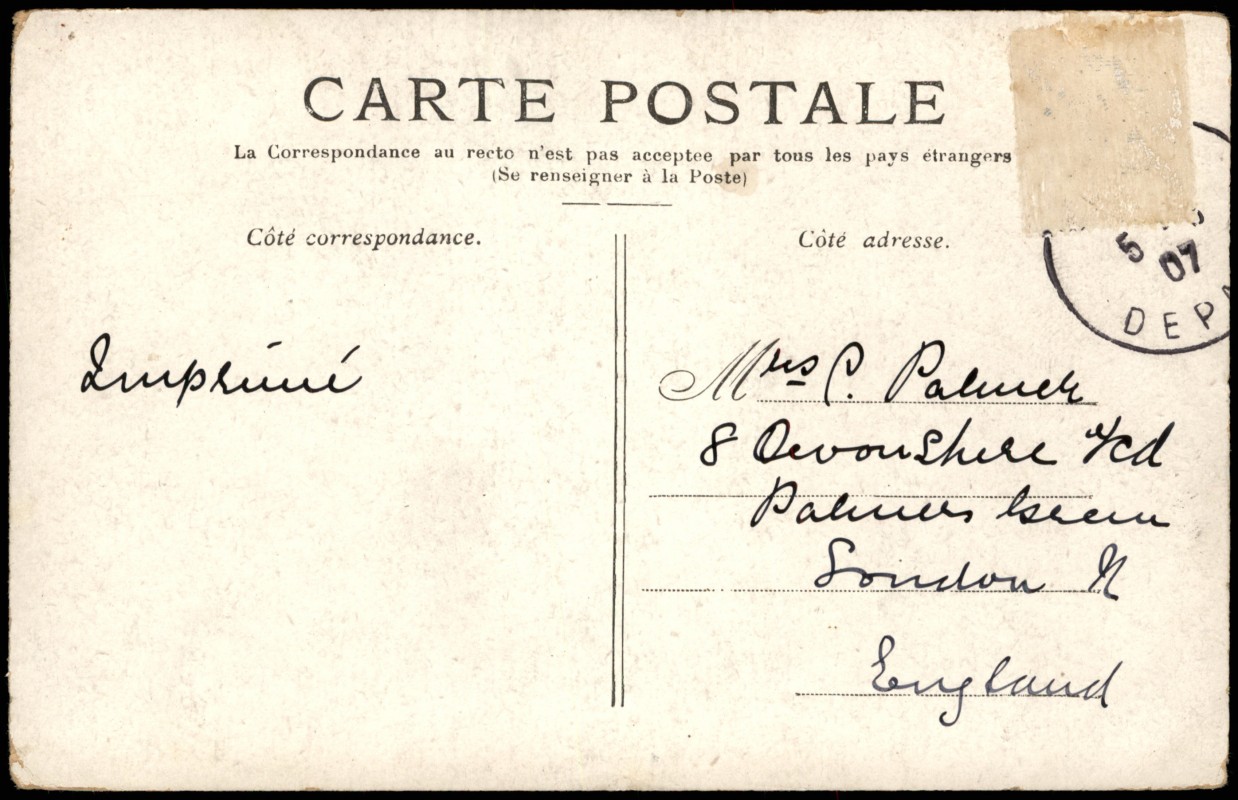 CARTE POSTALE
La Correspondance au recto n'est pas acceptee par tous les pays étrangers
(Se renseigner à la Poste)
Côté correspondance.
Côté adresse.
5
07
DEPA
Imprimé
Mrs P. Palmer
8 Devonshire Rd
Palmers Green
London N
England